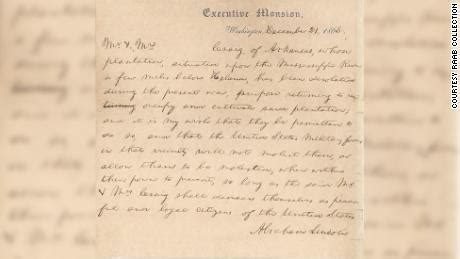 Executive Mansion,
Washington, December 21, 1863.
Mr. & Mrs. Craig of Arkansas, whose
plantation, situated upon the Mississippi River
a few miles below Helena, has been desolated
during the present war, purpose returning to re-
occupy and cultivate said plantation;
and it is my wish that they be permitted to
do so, and that the United States Military forces
in that vicinity will not molest them, or
allow them to be molested, when within
their power to prevent, so long as the said Mr.
& Mrs. Craig shall demean themselves as peace-
ful and loyal citizens of the United States
Abraham Lincoln
COURTESY RAAB COLLECTION